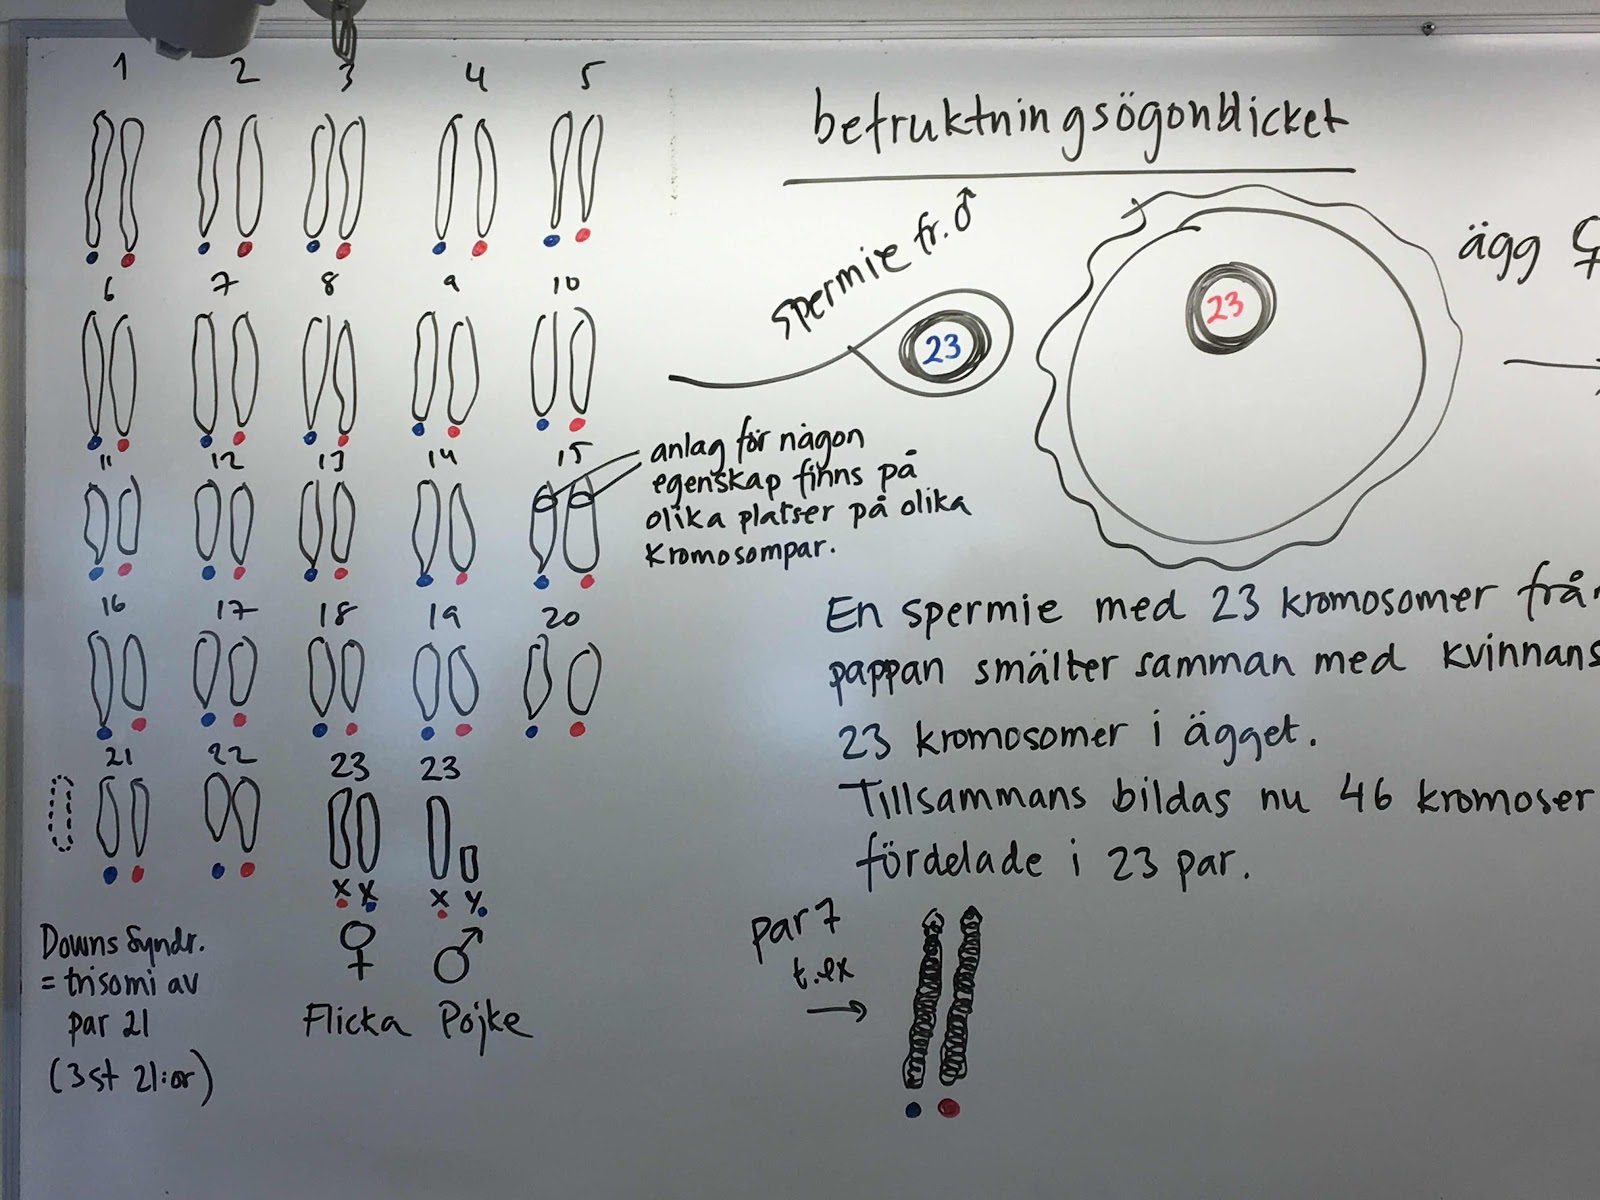 1 2 3 4 5
6 7 8 9 10
11 12 13 14 15
16 17 18 19 20
21 22 23 23
X X X Y
♀ ♂
Flicka Pojke
Downs Syndr.
= trisomi av
par 21
(3 st 21:or)
anlag för någon
egenskap finns på
olika platser på olika
kromosompar.
befruktningsögonblicket
spermie fr. ♂
23
23
ägg ♀
En spermie med 23 kromosomer från
pappan smälter samman med kvinnans
23 kromosomer i ägget.
Tillsammans bildas nu 46 kromoser
fördelade i 23 par.
par 7
t.ex